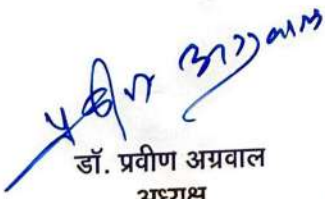 प्रवीण अग्रवाल
डॉ. प्रवीण अग्रवाल
अध्यक्ष